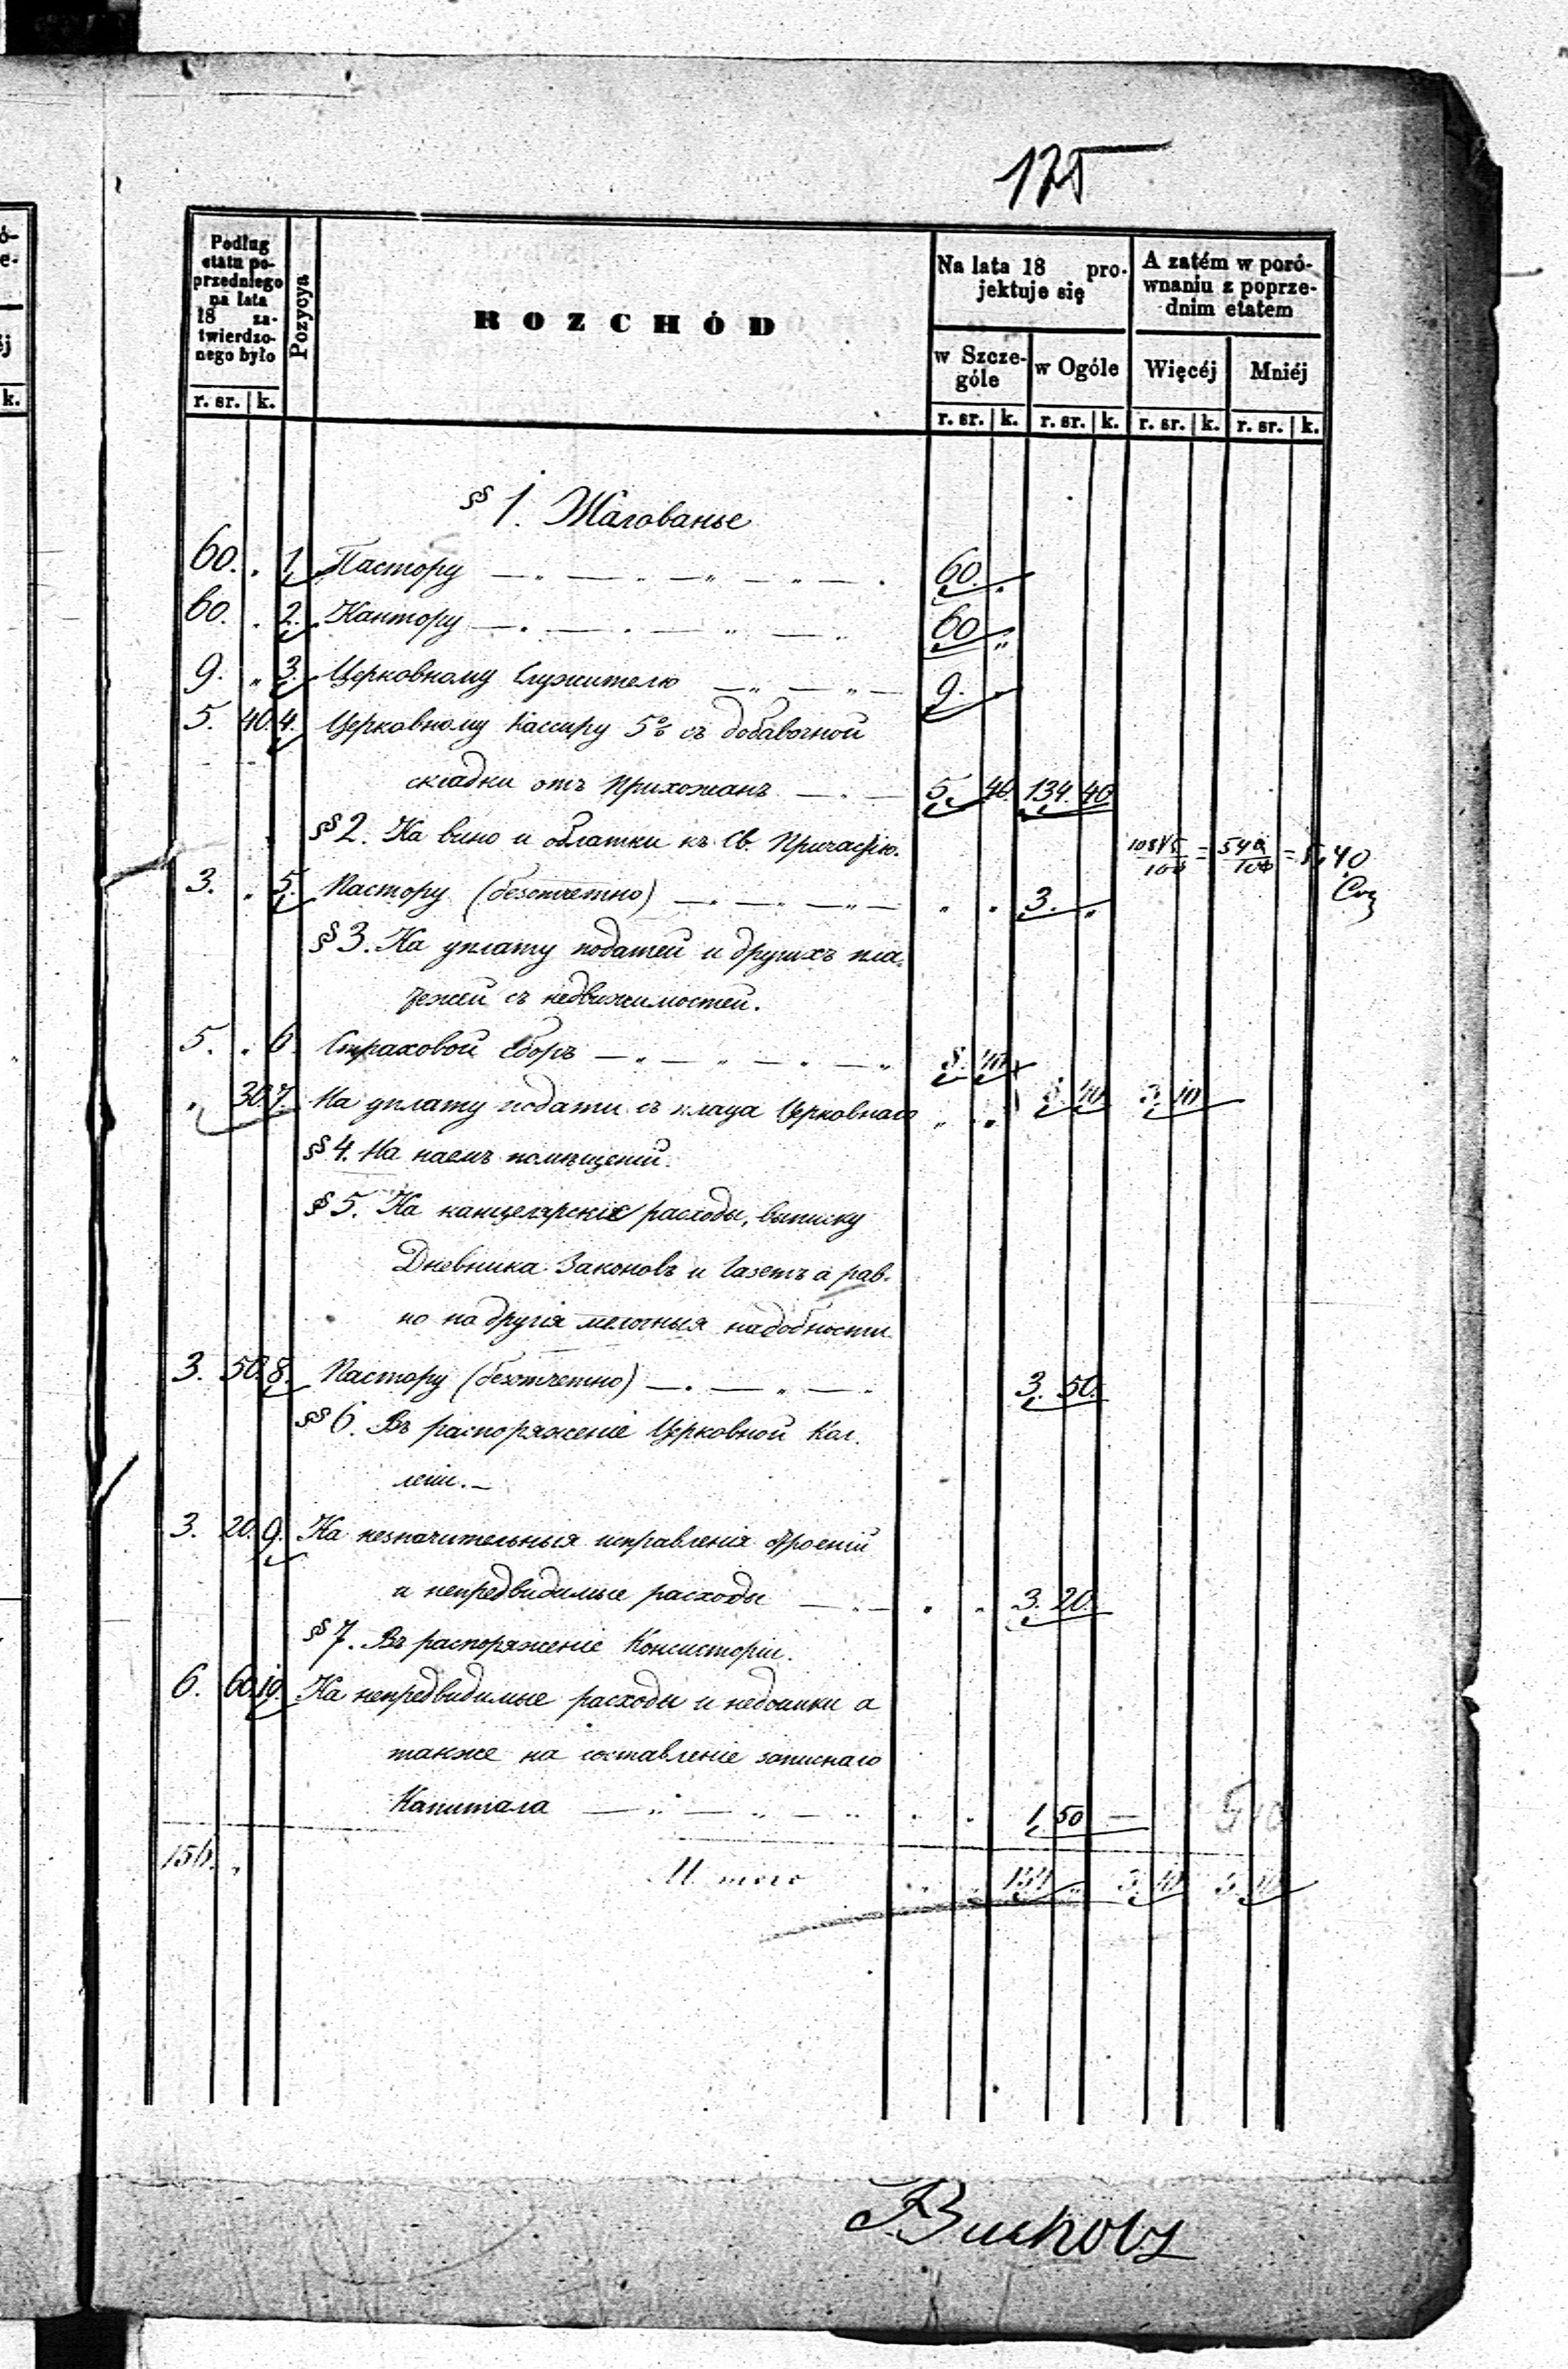 125
Podług etatu poprzedniego na lata 18 zatwierdzonego było
Pozycya
ROZCHÓD
Na lata 18 projektuje się
A zatém w porównaniu z poprzednim etatem
w Szczególe
w Ogóle
Więcéj
Mniéj
r. sr. | k.
r. sr. | k. r. sr. | k. r. sr. | k. r. sr. | k.
§ 1. Жалованье
60. „ 1. Пастору 60. „
60. „ 2. Кантору 60 „
9. „ 3. Церковному Служителю 9. „
5. 40. 4. Церковному Кассиру 5% съ добавочной
складки отъ прихожанъ 5. 40. 134. 40.
§ 2. На вино и облатки къ Св. Причастію.
= 540/100 = 5,40
3. „ 5. Пастору (безотчетно) „ „ 3. „
§ 3. На уплату податей и другихъ пла-
тежей съ недвижимостей.
5. „ 6. Страховой сборъ
„ 30. 7. На уплату подати съ плаца Церковнаго „ „
§ 4. На наемъ помѣщеній.
§ 5. На канцелярскіе расходы, выписку
Дневника Законовъ и Газетъ а рав-
но на другія мелочныя надобности
3. 50. 8. Пастору (безотчетно) 3. 50.
§ 6. Въ распоряженіе Церковной Кол-
легіи.
3. 20. 9. На незначительныя исправленія строеній
и непредвидимые расходы „ „ 3. 20.
§ 7. Въ распоряженіе Консисторіи.
6. 60. 10. На непредвидимые расходы и недоимки а
также на составленіе запаснаго
Капитала „ „ 1 50 —
156. „ Итого
Bucholz